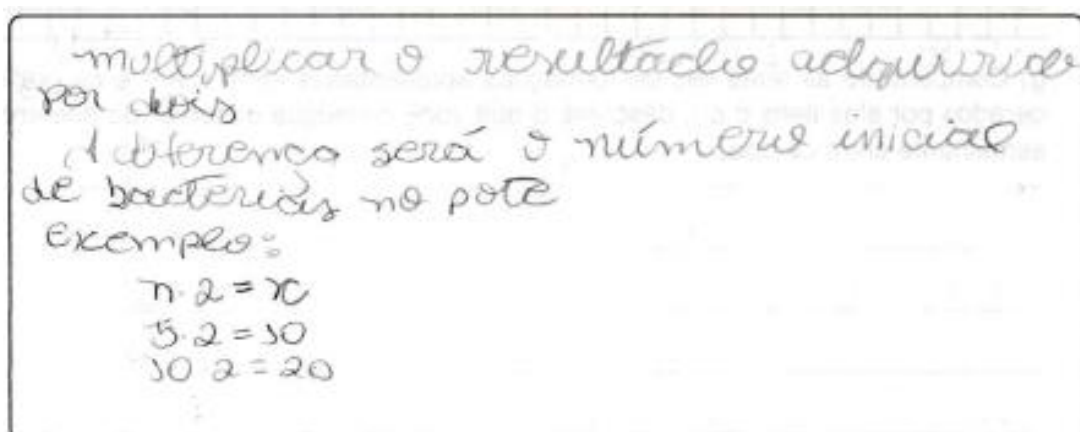 multiplicar o resultado adquirido
por dois
A diferença será o número inicial
de bactérias no pote
Exemplo:
n. 2 = x
5. 2 = 10
10 2 = 20